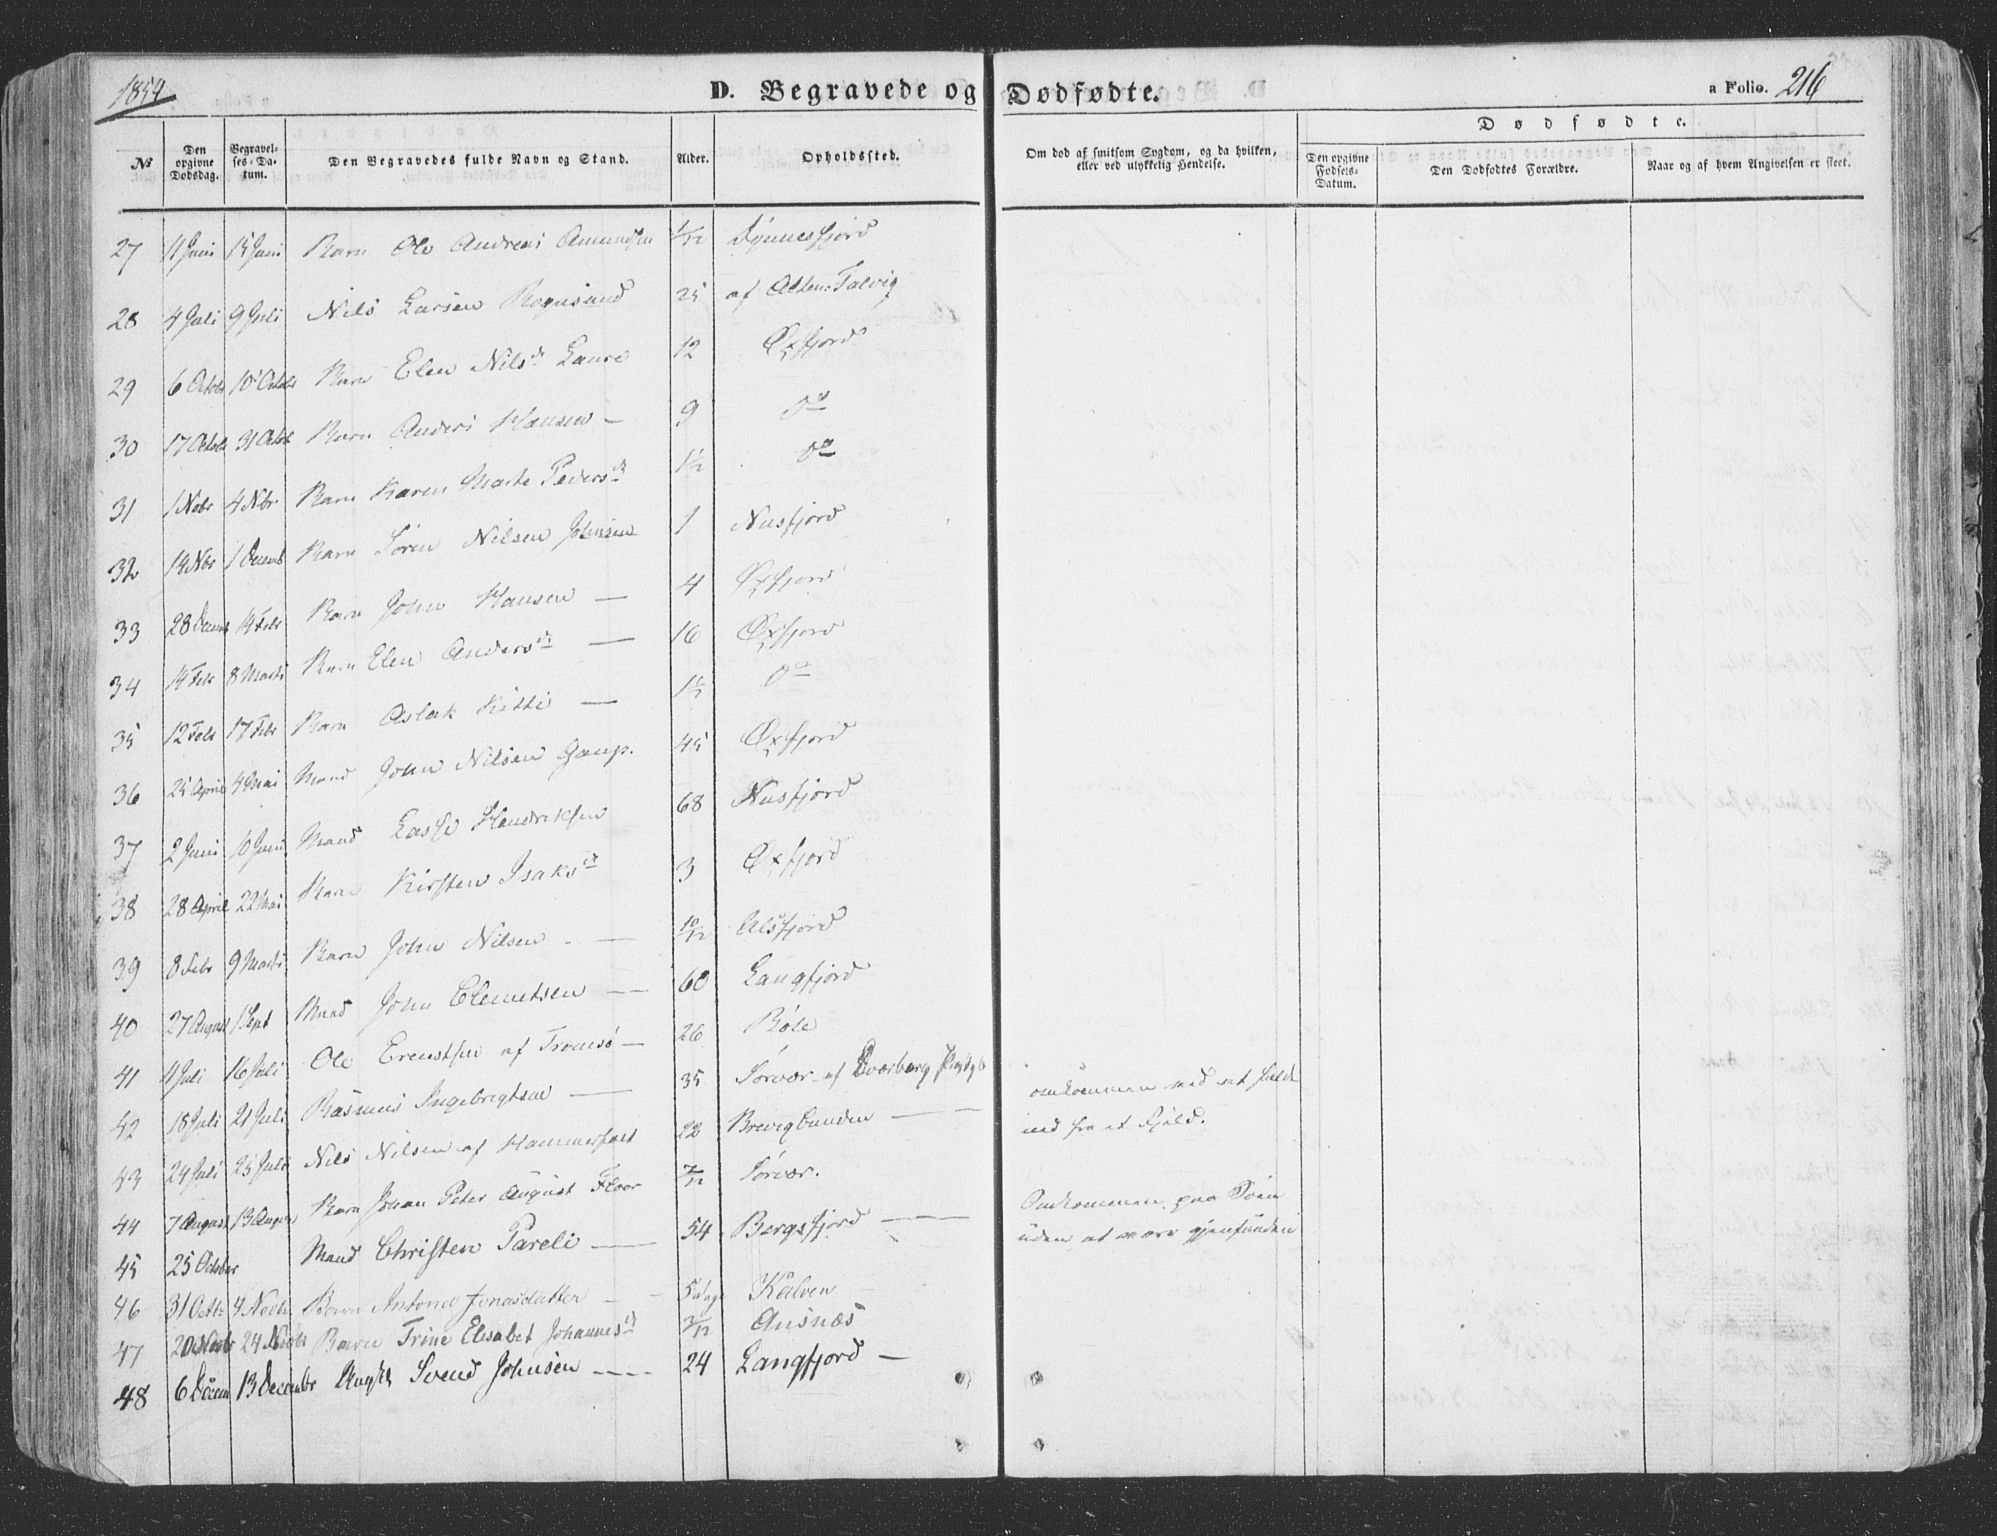 1854
D. Begravede og Dødfødte.
a Folio. 216
No
Den opgivne Dødsdag.
Begravelses-Datum.
Den Begravedes fulde Navn og Stand.
Alder.
Opholdssted.
Om død af smitsom Sygdom, og da hvilken, eller ved ulykkelig Hendelse.
Dødfødte.
Den opgivne Fødsels-Datum.
Den Dødfødtes Forældre.
Naar og af hvem Angivelsen er skeet.
27 11 Juni 15 Juni Barn Ole Andreas Amundsen 1/12
28 4 Juli 9 Juli Nils Larsen Rognsund 25 af Alten-Talvig
29 6 Octobr 10 Octobr Barn Elen Nilsd. 12 Øxfjord
30 17 Octobr 31 Octob Barn Anders Hansen — 9 do
31 1 Nobr 4 Nbr Barn Karen Marte Pedersd. 1½ do
32 14 Nbr 1 Decemb Barn Sören Nilsen Johnsen 1 Nusfjord
33 28 Decemb 14 Febr Barn John Hansen — 4 Øxfjord
34 14 Febr 8 Marts Barn Elen Andersd. — 16 Øxfjord
35 12 Febr 17 Febr Barn Aslak Kitti — do
36 25 April 4 Mai Mand John Nilsen Gaup. 45 Øxfjord
37 2 Juni 10 Juni Mand Lasse Hendriksen 68 Nusfjord
38 28 April 22 Mai Barn Kirsten Isaksd. 3 Øxfjord
39 8 Febr 9 Marts Barn John Nilsen — 10/12 Ulsfjord
40 27 August 1 Sept Mand John Clemetsen — 60 Langfjord
41 11 Juli 16 Juli Ole Erentsen af Tromsö — 26 Böle
42 18 Juli 21 Juli Rasmus Ingebrigtsen — 35 Sörvær af
43 24 Juli 25 Juli Nils Nilsen af Hammerfest 22 Brevigbunden — omkommen ved at falde
ned fra et Fjeld.
44 7 August 13 August Barn Johan Peter August Floor 7/12 Sörvær.
45 25 October Mand Christen Pareli — 54 Bergsfjord — Omkommen paa Söen
uden at være gjenfunden
46 31 Octbr 4 Novbr Barn Antona Jonasdatter — 5 dage Kalven
47 20 Novbr 24 Novbr Barn Trine Elisabet Johannesd. 3/12 Ausnæs
48 6 Decem 13 Decembr Svend Johnsen — 24 Langfjord —